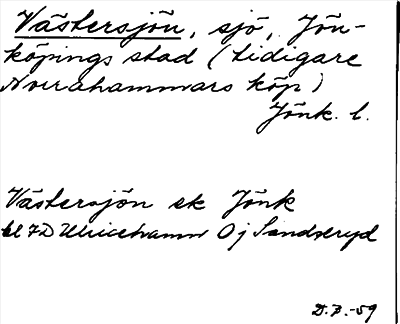 Västersjön, sjö, Jön-
köpings stad (tidigare
Norrahammars köp)
Jönk. l.
Västersjön ek Jönk
bl 7D Ulricehamn Öj Sandseryd
D.Z.-59